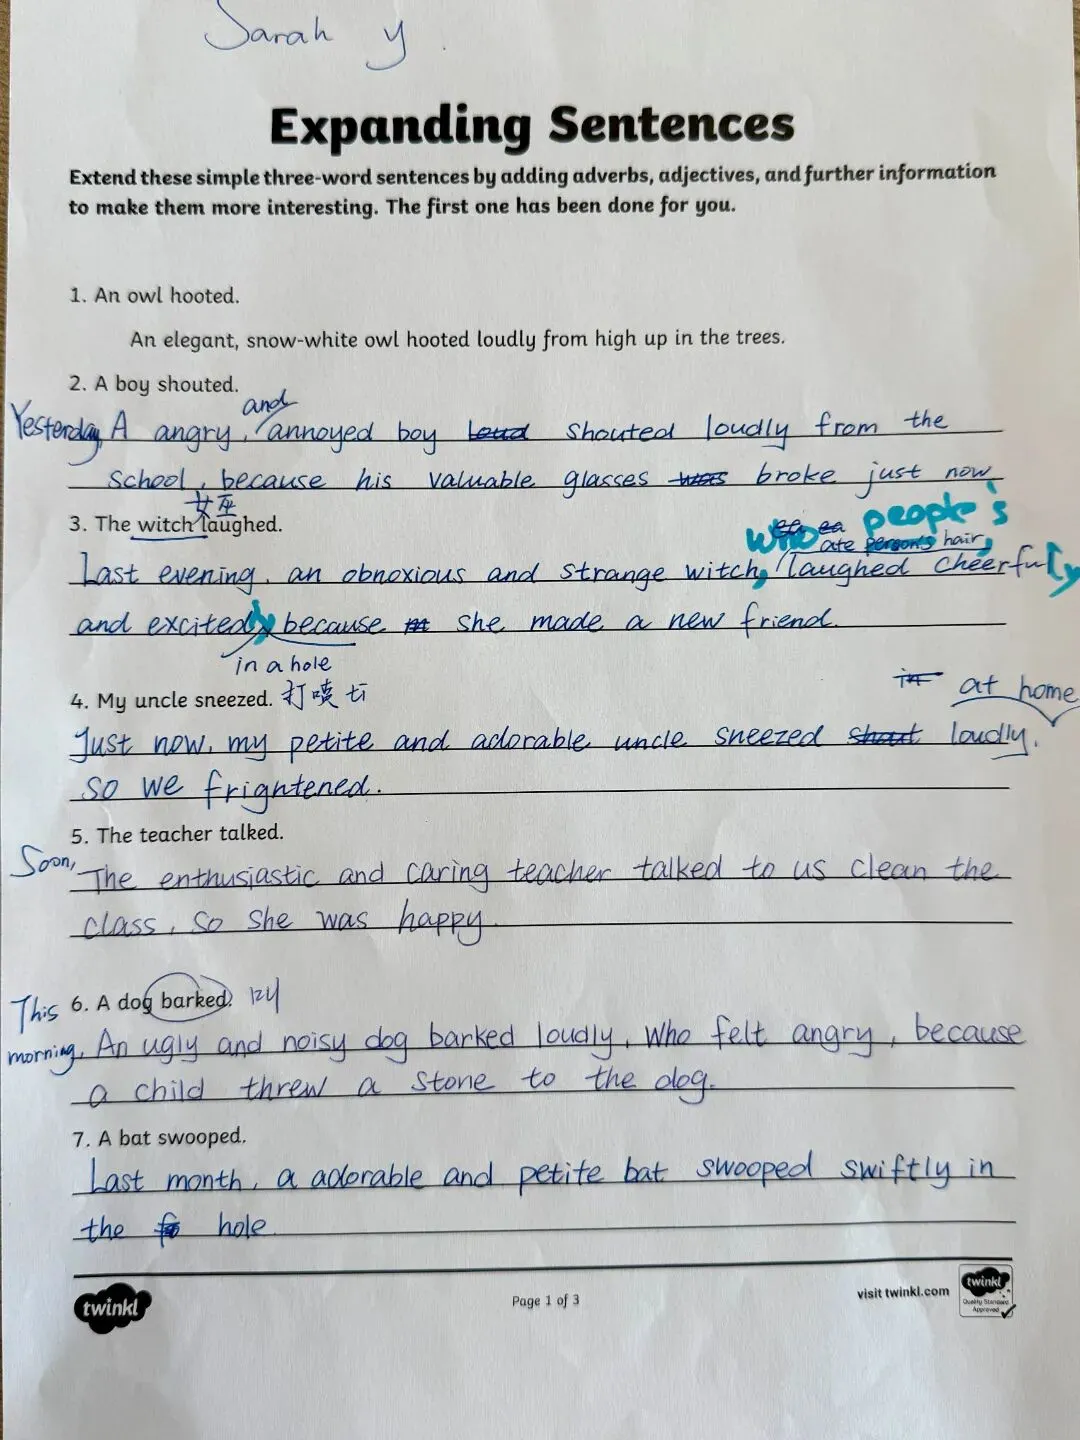 Sarah y.
Expanding Sentences
Extend these simple three-word sentences by adding adverbs, adjectives, and further information
to make them more interesting. The first one has been done for you.
1. An owl hooted.
An elegant, snow-white owl hooted loudly from high up in the trees.
2. A boy shouted.
and
Yesterday, A angry, annoyed boy loud shouted loudly from the
school, because his valuable glasses was broke just now
女巫
3. The witch laughed.
people's
who ate person's hair,
Last evening, an obnoxious and strange witch, laughed cheerfully
and excitedly because she made a new friend.
in a hole
4. My uncle sneezed. 打喷
in at home
Just now, my petite and adorable uncle sneezed shout loudly,
so we frightened.
5. The teacher talked.
Soon, The enthusiastic and caring teacher talked to us clean the
class, so she was happy.
6. A dog barked.
This
morning, An ugly and noisy dog barked loudly, Who felt angry, because
a child threw a stone to the dog.
7. A bat swooped.
Last month, a adorable and petite bat swooped swiftly in
the hole.
twinkl
Page 1 of 3
visit twinkl.com
twinkl
Quality Standard
Approved